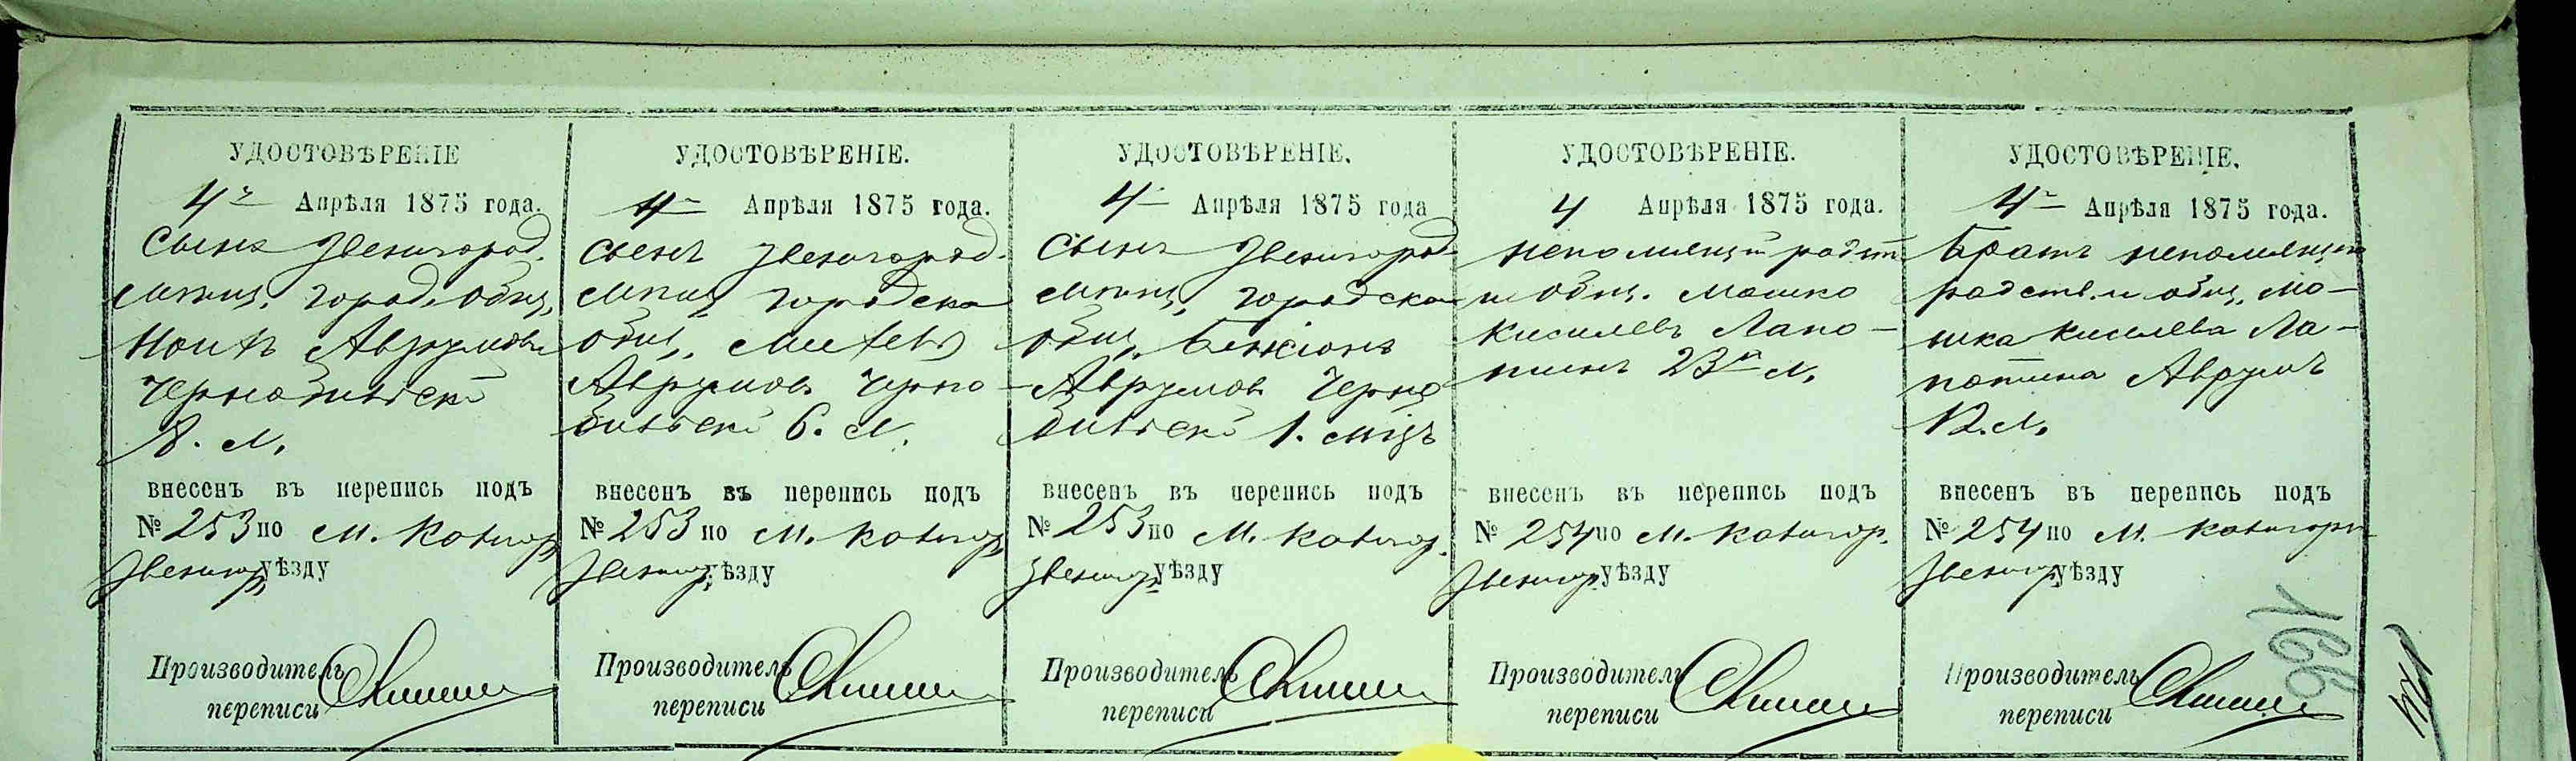 УДОСТОВѢРЕНІЕ
4го Апрѣля 1875 года.
Сынъ Звенигород.
мѣщ. город. общ.
Аврумовъ
Чернобильскій
8. л.
внесенъ въ перепись подъ
№ 253 по М. Катигор.
Звенигор. уѣзду
Производитель
переписи
УДОСТОВѢРЕНІЕ.
4го Апрѣля 1875 года.
Сынъ Звенигород.
мѣщ. городска
общ.
Аврумовъ Черно-
бильскій 6. л.
внесенъ въ перепись подъ
№ 253 по М. Катигор.
Звенигор. уѣзду
Производитель
переписи
УДОСТОВѢРЕНІЕ.
4 Апрѣля 1875 года
Сынъ Звенигород.
мѣщ. городска
общ. Бенціонъ
Аврумовъ Черно
бильскій 1. мѣц.
внесенъ въ перепись подъ
№ 253 по М. Катигор.
Звенигор. уѣзду
Производитель
переписи
УДОСТОВѢРЕНІЕ.
4 Апрѣля 1875 года.
непомнящій родст
и общ. Мошко
Кисилевъ Лапо-
тинъ 23 л.
внесенъ въ перепись подъ
№ 254 по М. Катигор.
Звенигор. уѣзду
Производитель
переписи
УДОСТОВѢРЕНІЕ.
4го Апрѣля 1875 года.
Братъ непомнящ.
родств. и общ. Мо-
шка Кисилева Ла-
потина Аврумъ
12. л.
внесенъ въ перепись подъ
№ 254 по М. Катигор.
Звенигор. уѣзду
Производитель
переписи
166